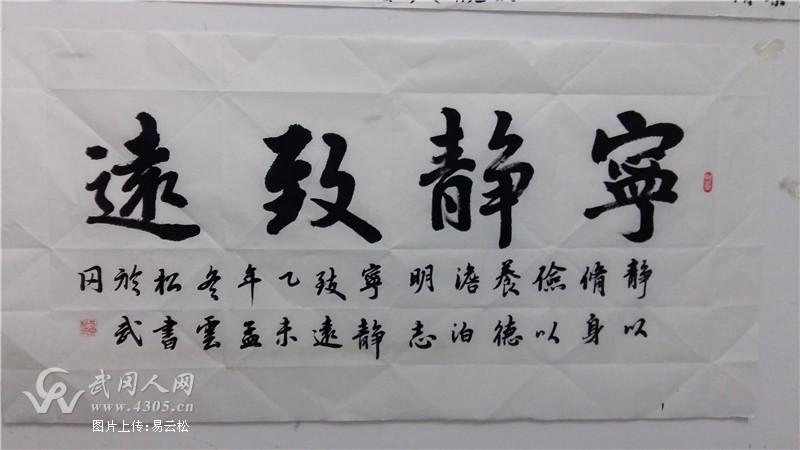 寧静致遠
静以
脩身
儉以
養德
澹泊
明志
寧静
致遠
乙未
年孟
冬雲
松書
於武
冈
武冈人网
www.4305.cn
图片上传:易云松